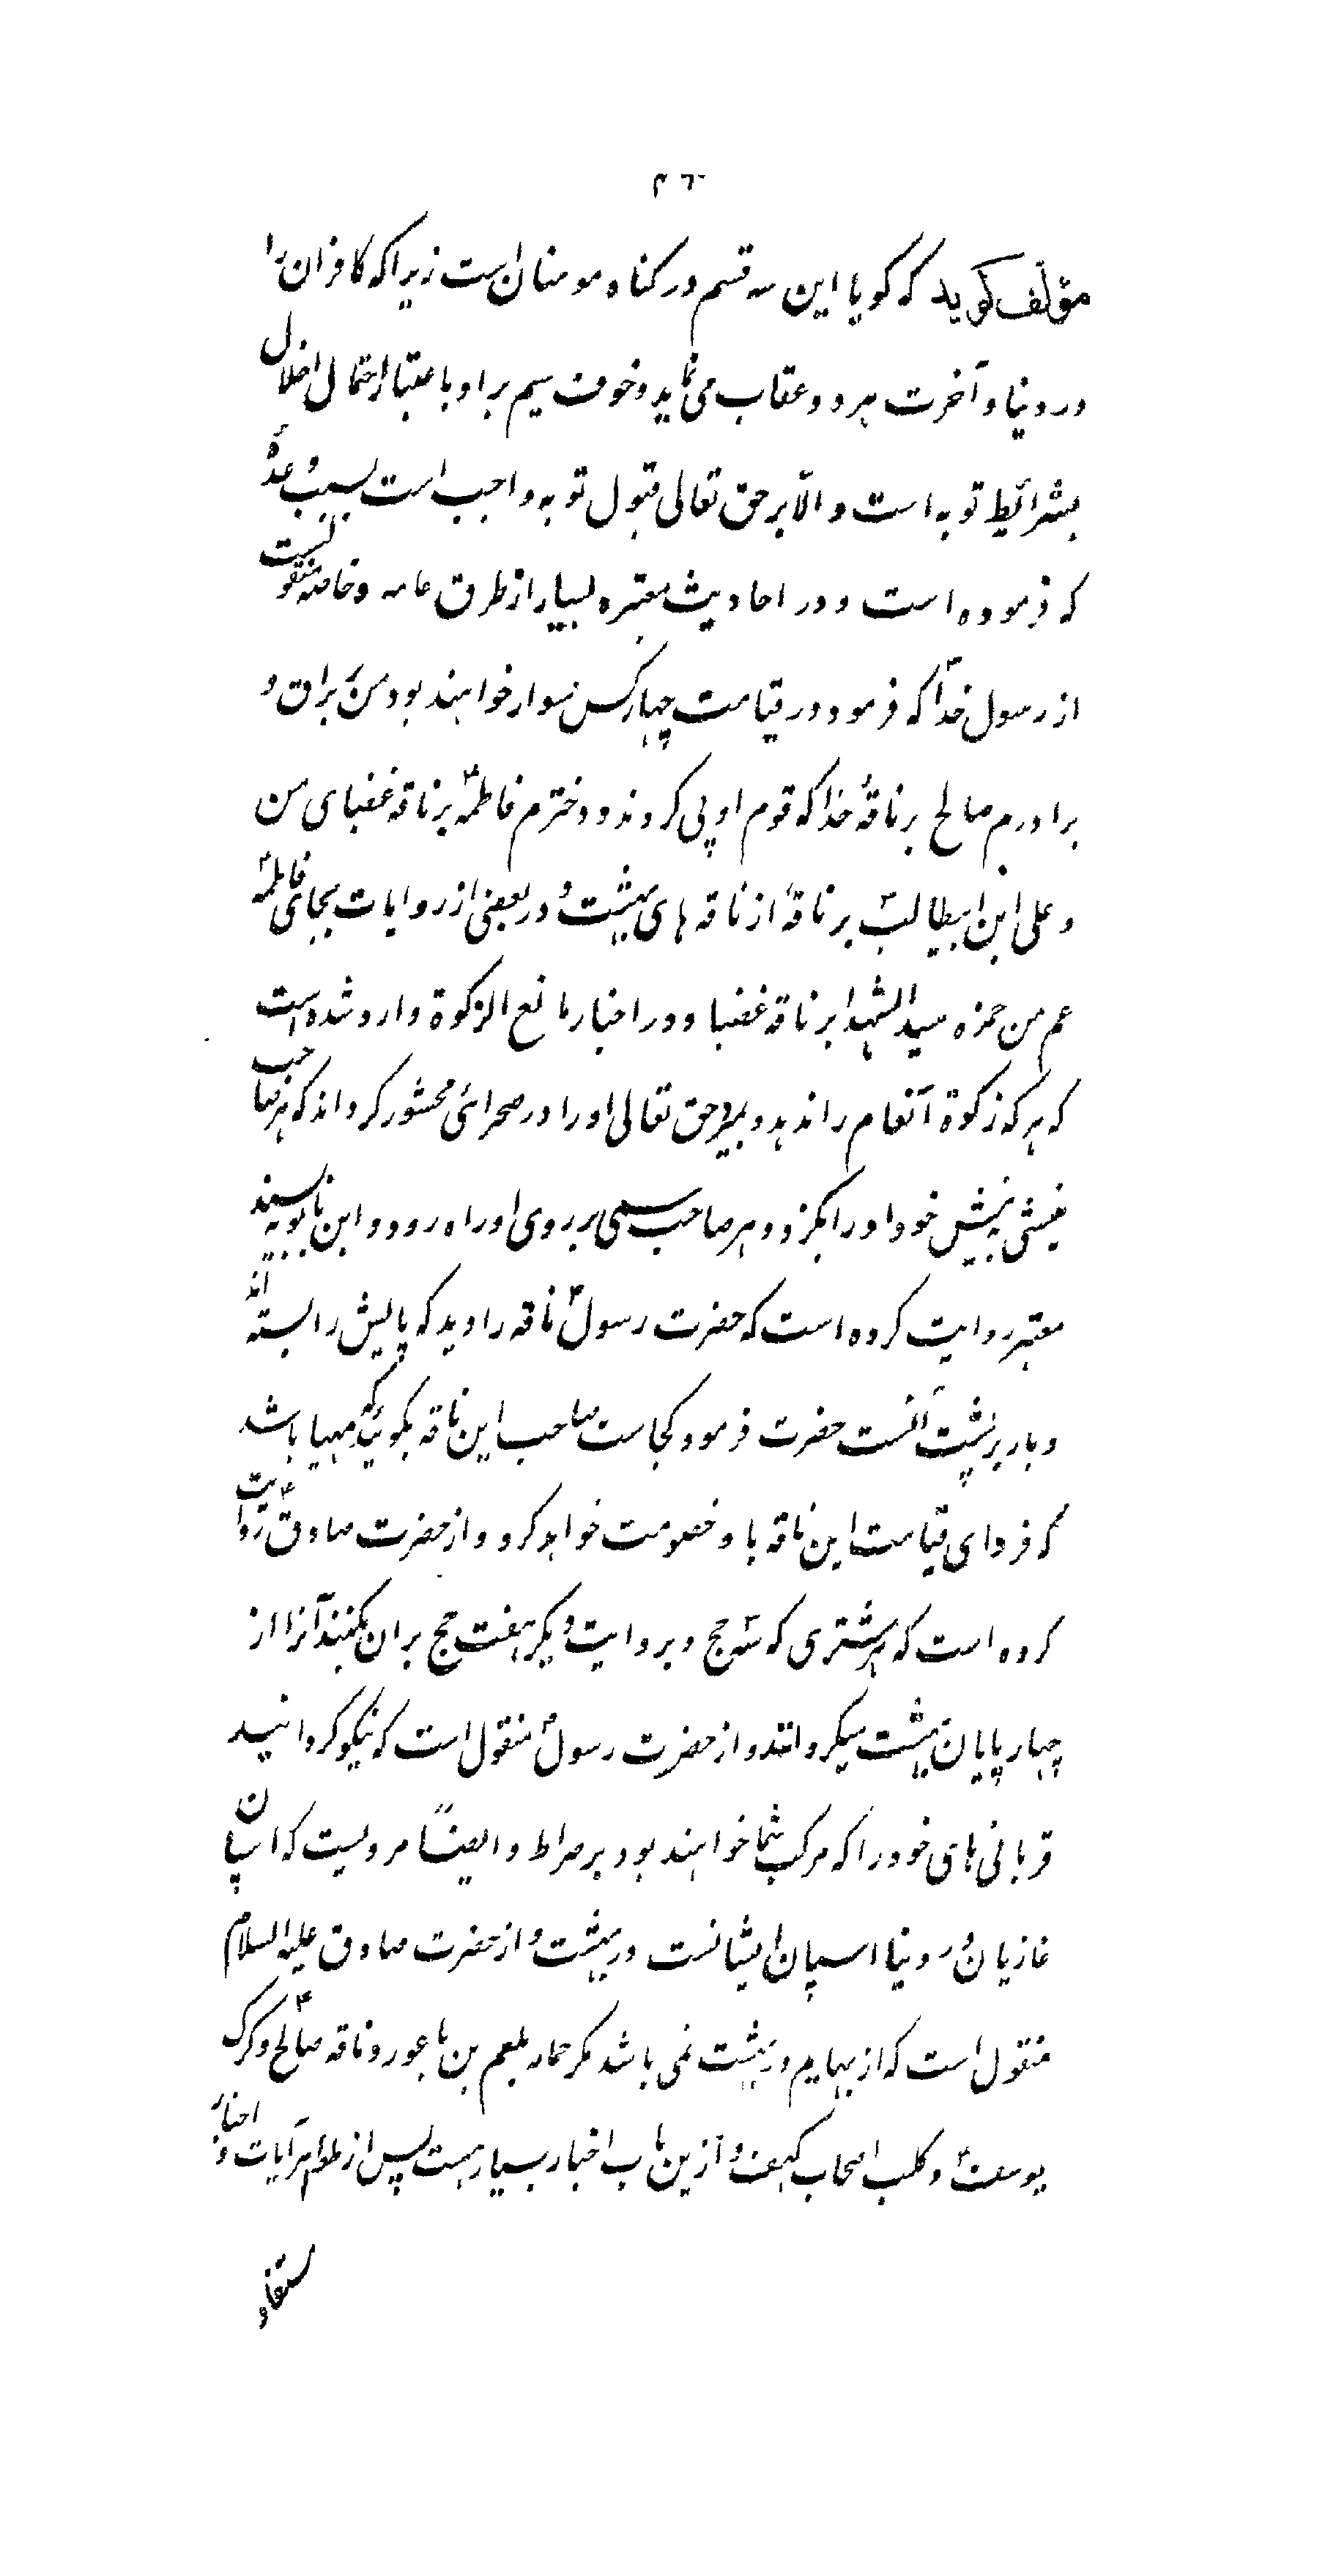 ۴۶
مؤلّف گوید که کویا این سه قسم در کناه مومنان است زیرا که کافران را
در دنیا و آخرت هر دو عقاب می نماید و خوف سیم بر او باعتبار احتمال اخلال
بشرائیط توبه است و الّا بر حق تعالی قبول توبه واجب است بسبب وعدهٔ
که فرموده است و در احادیث معتبره بسیار از طرق عامه و خاصه منقولست
از رسول خداؐ که فرمود در قیامت چهار کس سوار خواهند بود من بر براق و
برادرم صالح بر ناقهٔ خدا که قوم او پی کردند و دخترم فاطمهؑ بر ناقه غضبای من
و علی ابن ابیطالبؑ بر ناقهٔ از ناقه های بهشت و در بعضی از روایات بجای فاطمهؑ
عم من حمزه سید الشهدا بر ناقه غضبا و در اخبار مانع الزکوة وارد شده است
که هر که زکوة انعام را ندهد و بمیرد حق تعالی او را در صحرائی محشور کرداند که هر صاحب
نیشی به نیش خود او را بگزد و هر صاحب سمی بر روی او راه رود و ابن بابویه بسند
معتبر روایت کرده است که حضرت رسولؐ ناقه را دید که پایش را بسته اند
و بار بر پشت آنست حضرت فرمود کجاست صاحب این ناقه بکوئید که مهیا باشد
که فردای قیامت این ناقه با و خصومت خواهد کرد و از حضرت صادقؑ روایت
کرده است که هر شتری که سه حج و بروایت دیگر هفت حج بر ان بکنند آنرا از
چهار پایان بهشت میکردانند و از حضرت رسولؐ منقول است که نیکو کردانید
قربانی های خود را که مرکب شما خواهند بود بر صراط و ایضًا مرویست که اسپان
غازیان در دنیا اسپان ایشانست در بهشت و از حضرت صادق علیه السلام
منقول است که از بهایم در بهشت نمی باشد مکر حمار بلعم بن باعور و ناقه صالحؑ و کرک
یوسفؑ و کلب اصحاب کهف و ازین باب اخبار بسیار هست پس از ظواهر آیات و اخبار
مستفاد